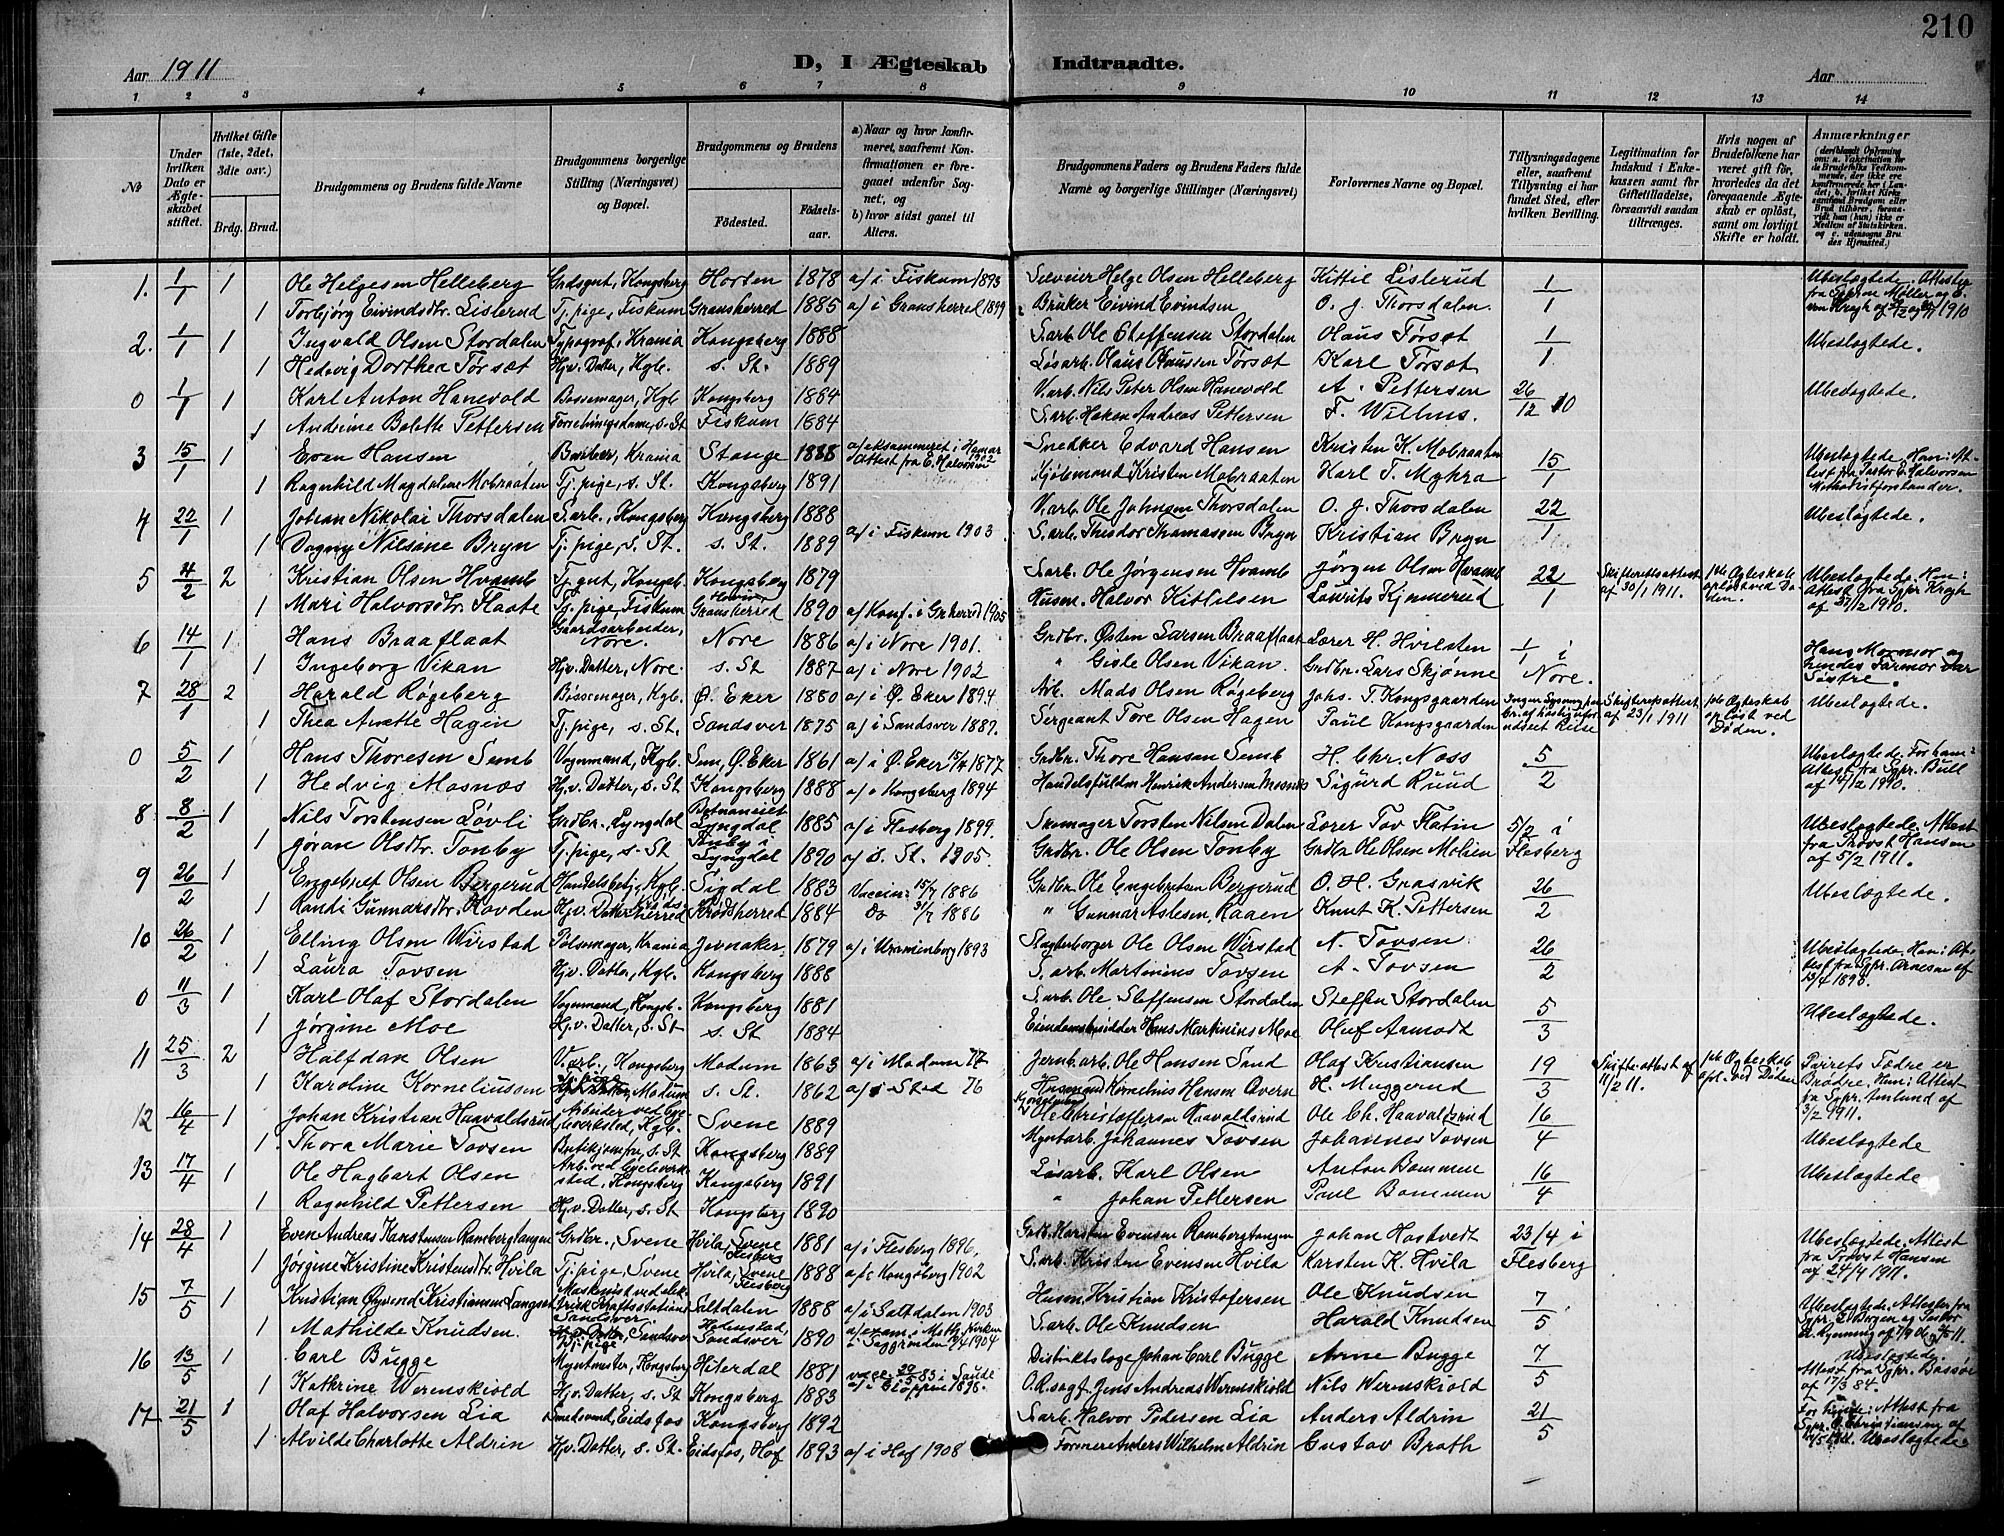 210
Aar 1911
D, I Ægteskab Indtraadte.
Aar
1 2 3 4 5 6 7 8 9 10 11 12 13 14
No
Under hvilken Dato er Ægteskabet stiftet.
Hvilket Gifte (1ste, 2det, 3die osv.)
Brdg. Brud.
Brudgommens og Brudens fulde Navne
Brudgommens borgerlige Stilling (Næringsvei) og Bopæl.
Brudgommens og Brudens
Fødested.
Fødselsaar.
a) Naar og hvor konfirmeret, saafremt Konfirmationen er foregaaet udenfor Sognet, og
b) hvor sidst gaaet til Alters.
Brudgommens Faders og Brudens Faders fulde Navne og borgerlige Stillinger (Næringsvei)
Forlovernes Navne og Bopæl.
Tillysningsdagene eller, saafremt Tillysning ei har fundet Sted, efter hvilken Bevilling.
Legitimation for Indskud i Enkekassen samt for Giftetilladelse, forsaavidt saadan tiltrænges.
Hvis nogen af Brudefolkene har været gift før, hvorledes da det foregaaende Ægteskab er opløst, samt om lovligt Skifte er holdt.
Anmærkninger
1. 1/1 1 Ole Helgesen Helleberg Grdsgut, Kongsberg Horten 1878 a/ i Fiskum 1893 Helge Olsen Helleberg Kittil Lislerud 1/1
1 Torbjørg Eivindsdtr. Lislerud Tj. pige, Fiskum Gransherred 1885 a/ i Gransherred 1899 Bruker Eivind Eivindsen O. J. Thorsdalen
2. 1/1 1 Ingvald Olsen Stordalen Typograf, Krania Kongsberg 1888 S.arb. Ole Steffensen Stordalen Olaus Tørset 1/1 Ubeslægtede.
1 Hedvig Dorthea Tørset Hjv. Datter, Kgb. s. St. 1889 Løsarb. Olaus Tørset Karl Tørset
0 1/1 1 Karl Anton Hanevold Bøssemager, Kgb Kongsberg 1884 V.arb. Nils Peter Olsen Hanevold A. Pettersen 26/12 10 Ubeslægtede.
1 Andrine Bolette Pettersen s. St Fiskum 1884 S.arb. Hakon Andreas Pettersen
3 15/1 1 Even Hansen Barber, Krania Stange 1888 Snedker Edvard Hansen Kristen K. Mobraaten 15/1
1 Ragnhild Magdalene Mobraaten Tj. pige, s. St. Kongsberg 1891 Kristen Mobraaten Karl T. Myhra
4 22/1 1 Johan Nikolai Thorsdalen S.arb., Kongsberg Kongsberg 1888 V.arb. Ole Johnsen Thorsdalen O. J. Thorsdalen 22/1 Ubeslægtede.
1 Dagny Nilsine Bryn Tj. pige, s. St. s. St. 1889 a/ i Fiskum 1903 S.arb. Theodor Thomassen Bryn Kristian Bryn
5 4/2 2 Kristian Olsen Hvamb Tj. gut, Kongsb. Kongsberg 1879 S.arb. Ole Jørgensen Hvamb Jørgen Olsen Hvamb 22/1 Skifteretsattest af 30/1 1911. 1ste Ægteskab opløst ved Døden.
1 Mari Halvorsdtr. Flaate Tj. pige, Fiskum Gransherred 1890 Husm. Halvor Kittelsen Laurits Kjennerud
6 14/1 1 Hans Braaflaat Gaardsarbeider, Nore. Nore 1886 a/ i Nore 1901. Grdbr. Østen Larsen Braaflaat Lærer H. Hvilsten 1/1 i Nore.
1 Ingeborg Vikan Hjv. Datter, Nore. s. St 1887 a/ i Nore 1902 " Gisle Olsen Vikan. Grdbr. Lars Skjønne
7 28/1 2 Harald Røgeberg Bøssemager, Kgb. Ø. Eker 1880 a/ i Ø. Eker 1894. Arb. Mads Olsen Røgeberg Johs. T. Kongsgaarden Skifteretsattest af 23/1 1911 1ste Ægteskab opløst ved Døden. Ubeslægtede.
1 Thea Anette Hagen Tj. pige, s. St. Sandsver 1875 a/ i Sandsver 1889. Sergeant Tore Olsen Hagen Paul Kongsgaarden
0 5/2 1 Hans Thoresen Semb Vognmand, Kgb. Sem, Ø. Eker 1861 a/ i Ø. Eker 15/4 1877 Grdbr. Thore Hansen Semb H. Chr. Næss 5/2
1 Hedvig Mosnæs Hjv. Datter, s. St Kongsberg 1888 a/ i Kongsberg 1894 Henrik Andersen Mosnæs Sigurd Ruud
8 8/2 1 Nils Torstensen Løvli Grdbr., Lyngdal Lyngdal 1885 a/ i Flesberg 1899. Skomager Torsten Nilsen Dalen Lærer Tov Flatin 5/2 i Flesberg Ubeslægtede. Attest fra Provst Hansen af 5/2 1911.
1 Jøran Olsdtr. Tonby Tj. pige, s. St Lyngdal 1890 a/ i s. St. 1905. Grdbr. Ole Olsen Tonby Grdbr. Ole Olsen Moljen
9 26/2 1 Engebret Olsen Bergerud Kgb. Sigdal 1883 Vaccin: 15/7 1886 Grdbr. Ole Engebretsen Bergerud O. H. Grasvik 26/2 Ubeslægtede.
1 Randi Gunnarsdtr. Ravden Hjv. Datter Krødsherred Krødsherred 1884 Do 31/7 1886 " Gunnar Aslesen Raaen Knut K. Pettersen
10 26/2 1 Elling Olsen Wirstad Pølsemager, Krania Jevnaker 1879 a/ i Uranienborg 1893 Slagterborger Ole Olsen Wirstad N. Tovsen 26/2
1 Laura Tovsen Hjv. Datter, Kgb. Kongsberg 1888 S. arb. Martinius Tovsen A. Tovsen
0 11/3 1 Karl Olaf Stordalen Vognmand, Kongsb. Kongsberg 1881 S.arb. Ole Steffensen Stordalen Steffen Stordalen 5/3 Ubeslægtede.
1 Jørgine Moe Hjv. Datter, s. St s. St 1884 Eiendomsbesidder Hans Martinius Moe Oluf Aamodt
11 25/3 2 Halfdan Olsen V.arb., Kongsberg Modum 1863 a/ i Modum 77 Jernb.arb. Ole Hansen Sand Olaf Kristiansen 19/3 Skifteattest af 11/2 11. 1ste Ægteskab opl. ved Døden Parrets Fædre er Brødre.
1 Karoline Korneliussen Modum s. St. 1862 a/ i Sted 76 Husmand Kornelius Hansen Overn H. Muggerud
12 16/4 1 Johan Kristian Haavaldsrud Arbeider ved Cycleverksted, Kgb. Svene 1889 Ole Christoffersen Haavaldsrud Ole Ch. Haavaldsrud 16/4 Ubeslægtede
1 Thora Marie Tovsen Butikjomfru, s. St Kongsberg 1889 Myntarb. Johannes Tovsen Johannes Tovsen
13 17/4 1 Ole Hagbart Olsen Arb. ved Cycleverksted, Kongsberg Kongsberg 1891 Løsarb. Karl Olsen Anton Bommen 16/4 Ubeslægtede
1 Ragnhild Pettersen Hjv. Datter, s. St Kongsberg 1890 " Johan Pettersen Paul Bommen
14 28/4 1 Even Andreas Karstensen Rambergtangen Grdbr., Svene Hvila, Svene Flesberg 1881 a/ i Flesberg 1896, Grdb. Karsten Evensen Rambergtangen Johan Hostvedt 23/4 i Flesberg Ubeslægtede. Attest fra Provst Hansen af 24/4 1911.
1 Jørgine Kristine Kristensdtr. Hvila Tj. pige, Svene Hvila, Svene Flesberg 1888 a/ i Kongsberg 1902 S.arb. Kristen Evensen Hvila Karsten K. Hvila
15 7/5 1 Kristian Øyvind Kristiansen Langset Maskinist ved elektrisk Kraftstation Saltdalen 1888 a/ i Saltdalen 1903 Husm. Kristian Kristofersen Ole Knudsen 7/5
1 Mathilde Knudsen. Sandsver Sandsver 1890 S.arb. Ole Knudsen Harald Knudsen
16 13/5 1 Carl Bugge Myntmester, Kongsberg Hiterdal 1881 Distriktslæge Johan Carl Bugge Arne Bugge 7/5 Ubeslægtede.
1 Kathrine Werenskiold Hjv. Datter, s. St Kongsberg 1883 O.R.sagf. Jens Andreas Werenskiold Nils Werenskiold
17 21/5 1 Olaf Halvorsen Lia Eidsfos Kongsberg 1892 S.arb. Halvor Pedersen Lia Anders Aldrin 21/5
1 Alvilde Charlotte Aldrin Hjv. Datter, s. St. Eidsfos, Hof 1893 a/ i Hof 1908 Former Anders Wilhelm Aldrin Gustav Brath